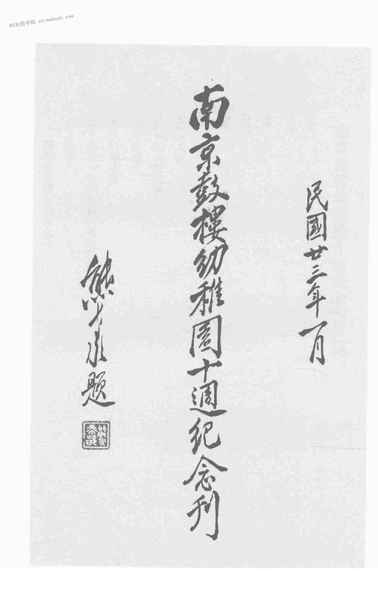 民國廿三年一月
南京鼓樓幼稚園十週紀念刊
熊希齡題